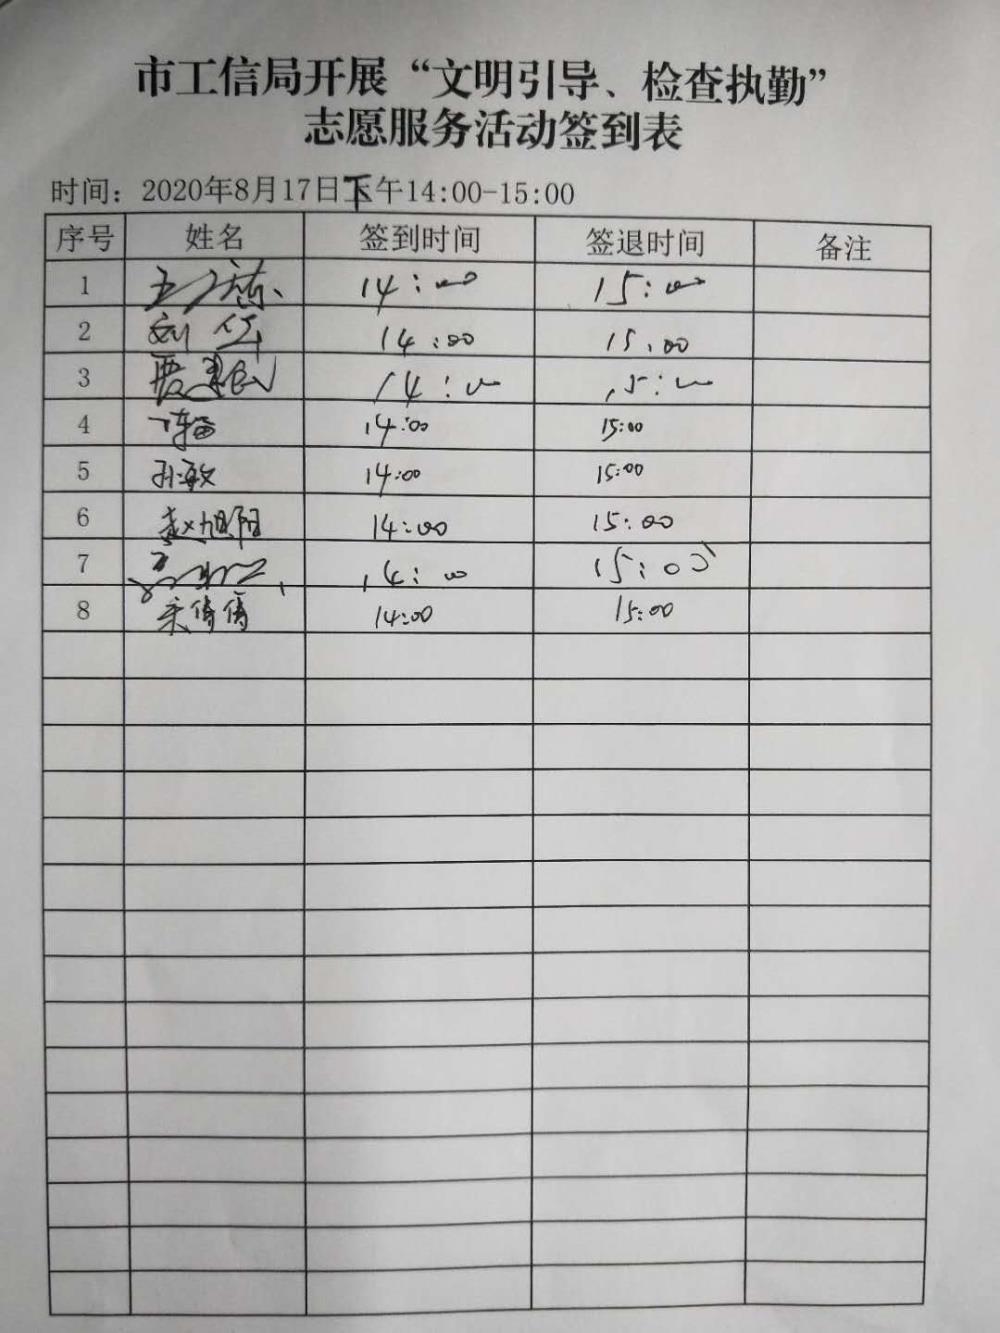 市工信局开展“文明引导、检查执勤”
志愿服务活动签到表
时间：2020年8月17日下午14:00-15:00
序号 姓名 签到时间 签退时间 备注
1 14:00 15:00
2 刘 14:00 15:00
3 贾建民 14:00 15:00
4 14:00 15:00
5 孙敏 14:00 15:00
6 赵旭阳 14:00 15:00
7 14:00 15:00
8 宋倩倩 14:00 15:00